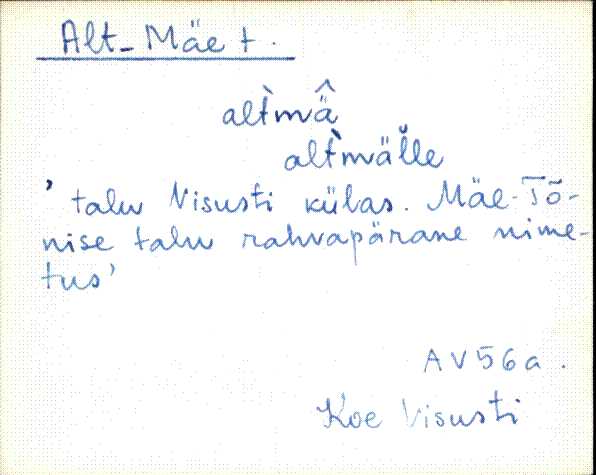 Alt-Mäe t.
alt̀mä̂
alt̀mäl̆le
’ talu Visusti külas. Mäe-Tõ-
nise talu rahvapärane nime-
tus’
AV56a.
Koe Visusti